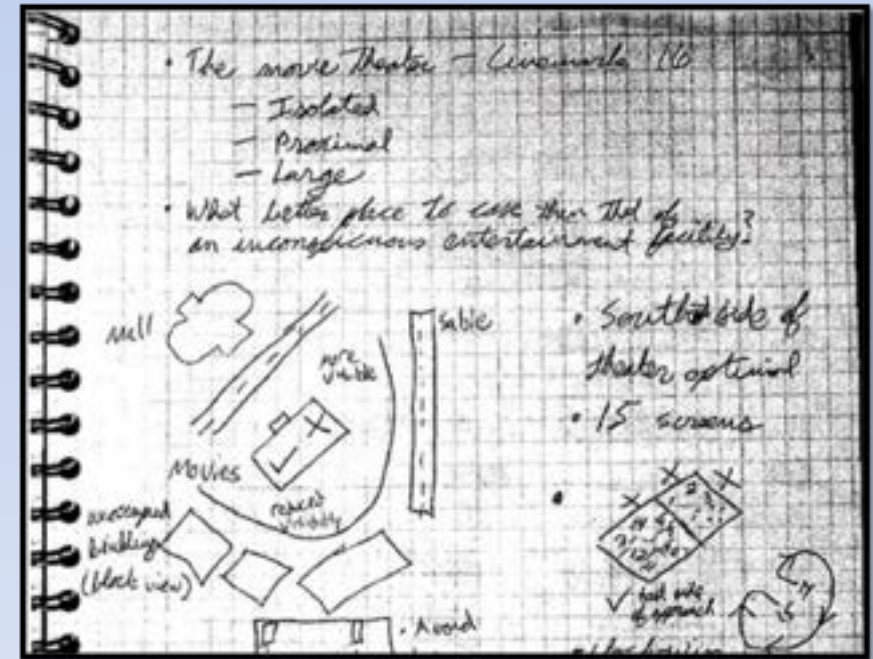 • The movie Theater – Cinemark 16
– Isolated
– Proximal
– Large
• What better place to case than that of
an inconspicuous entertainment facility?
Mall
Sable
more
visible
• South side of
theater optimal
• 15 screens
Movies
reduced
visibility
unoccupied
buildings
(block view)
✓ best side
of approach
• Avoid